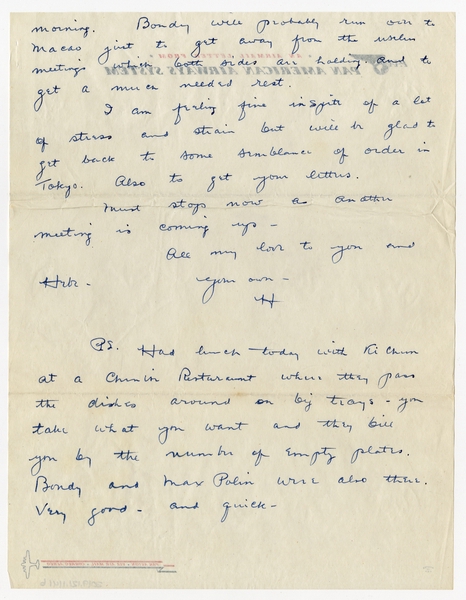 morning. Bondy will probably run over to
Macao just to get away from the useless
meetings which both sides are holding and to
get a much needed rest.
I am feeling fine inspite of a lot
of stress and strain but will be glad to
get back to some semblance of order in
Tokyo. Also to get your letters.
Must stop now as another
meeting is coming up -
All my love to you and
Your own -
H
P.S. Had lunch today with Ki Chun
at a Restaraunt where they pass
the dishes around on big trays - you
take what you want and they bill
you by the number of empty plates.
Bondy and Max Polin were also there.
Very good - and quick -